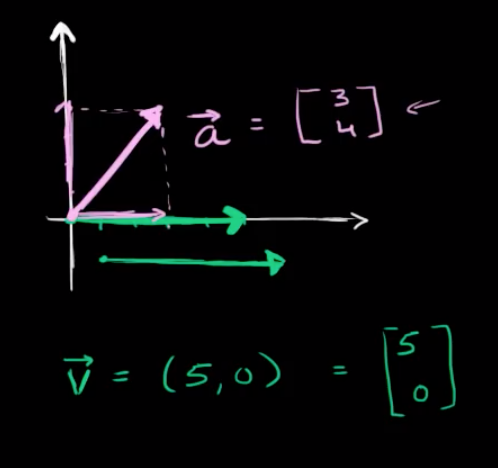 a⃗ = [3 4] ←
v⃗ = (5,0) = [5 0]